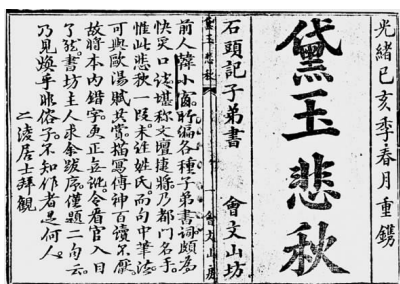 光緒己亥季春月重鐫
黛玉悲秋
石頭記子弟書 會文山坊
黛玉悲秋 一 會文山房
前人韓小窗所編各種子弟書詞頗為
快炙口談堪稱文壇捷將乃都門名手
惟此悲秋一段未注姓氏而句中筆法
可與歐陽賦共賞描寫傳神百讀不厭
故將本內錯字更正無訛令看官入目
了然書坊主人求余跋序僅題二句云
乃見煥乎非俗子不知作者是何人
二凌居士拜觀